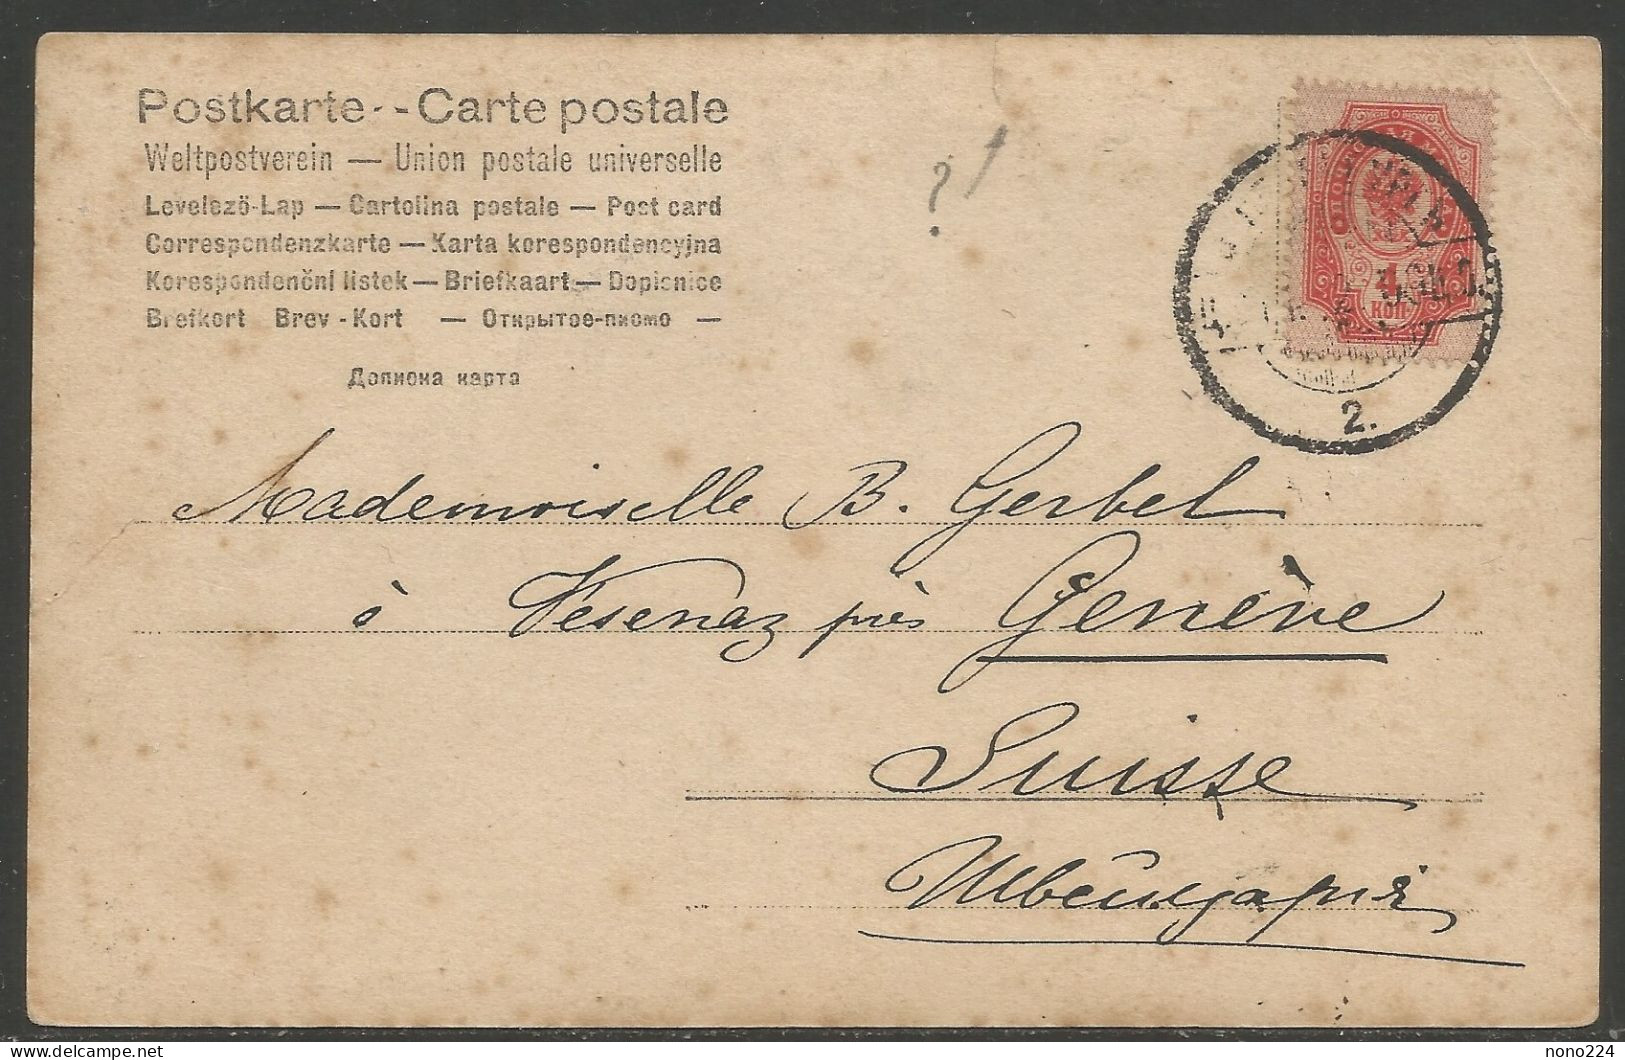 Postkarte - - Carte postale
Weltpostverein — Union postale universelle
Levelező-Lap — Cartolina postale — Post card
Correspondenzkarte — Karta korespondencyjna
Korespondenční listek — Briefkaart — Dopisnice
Brefkort Brev - Kort — Открытое-письмо —
Дописна карта
?
4
коп
2.
Mademoiselle B. Gerbel
à Vesenaz près Genève
Suisse
Швейцарія
delcampe.net
nono224